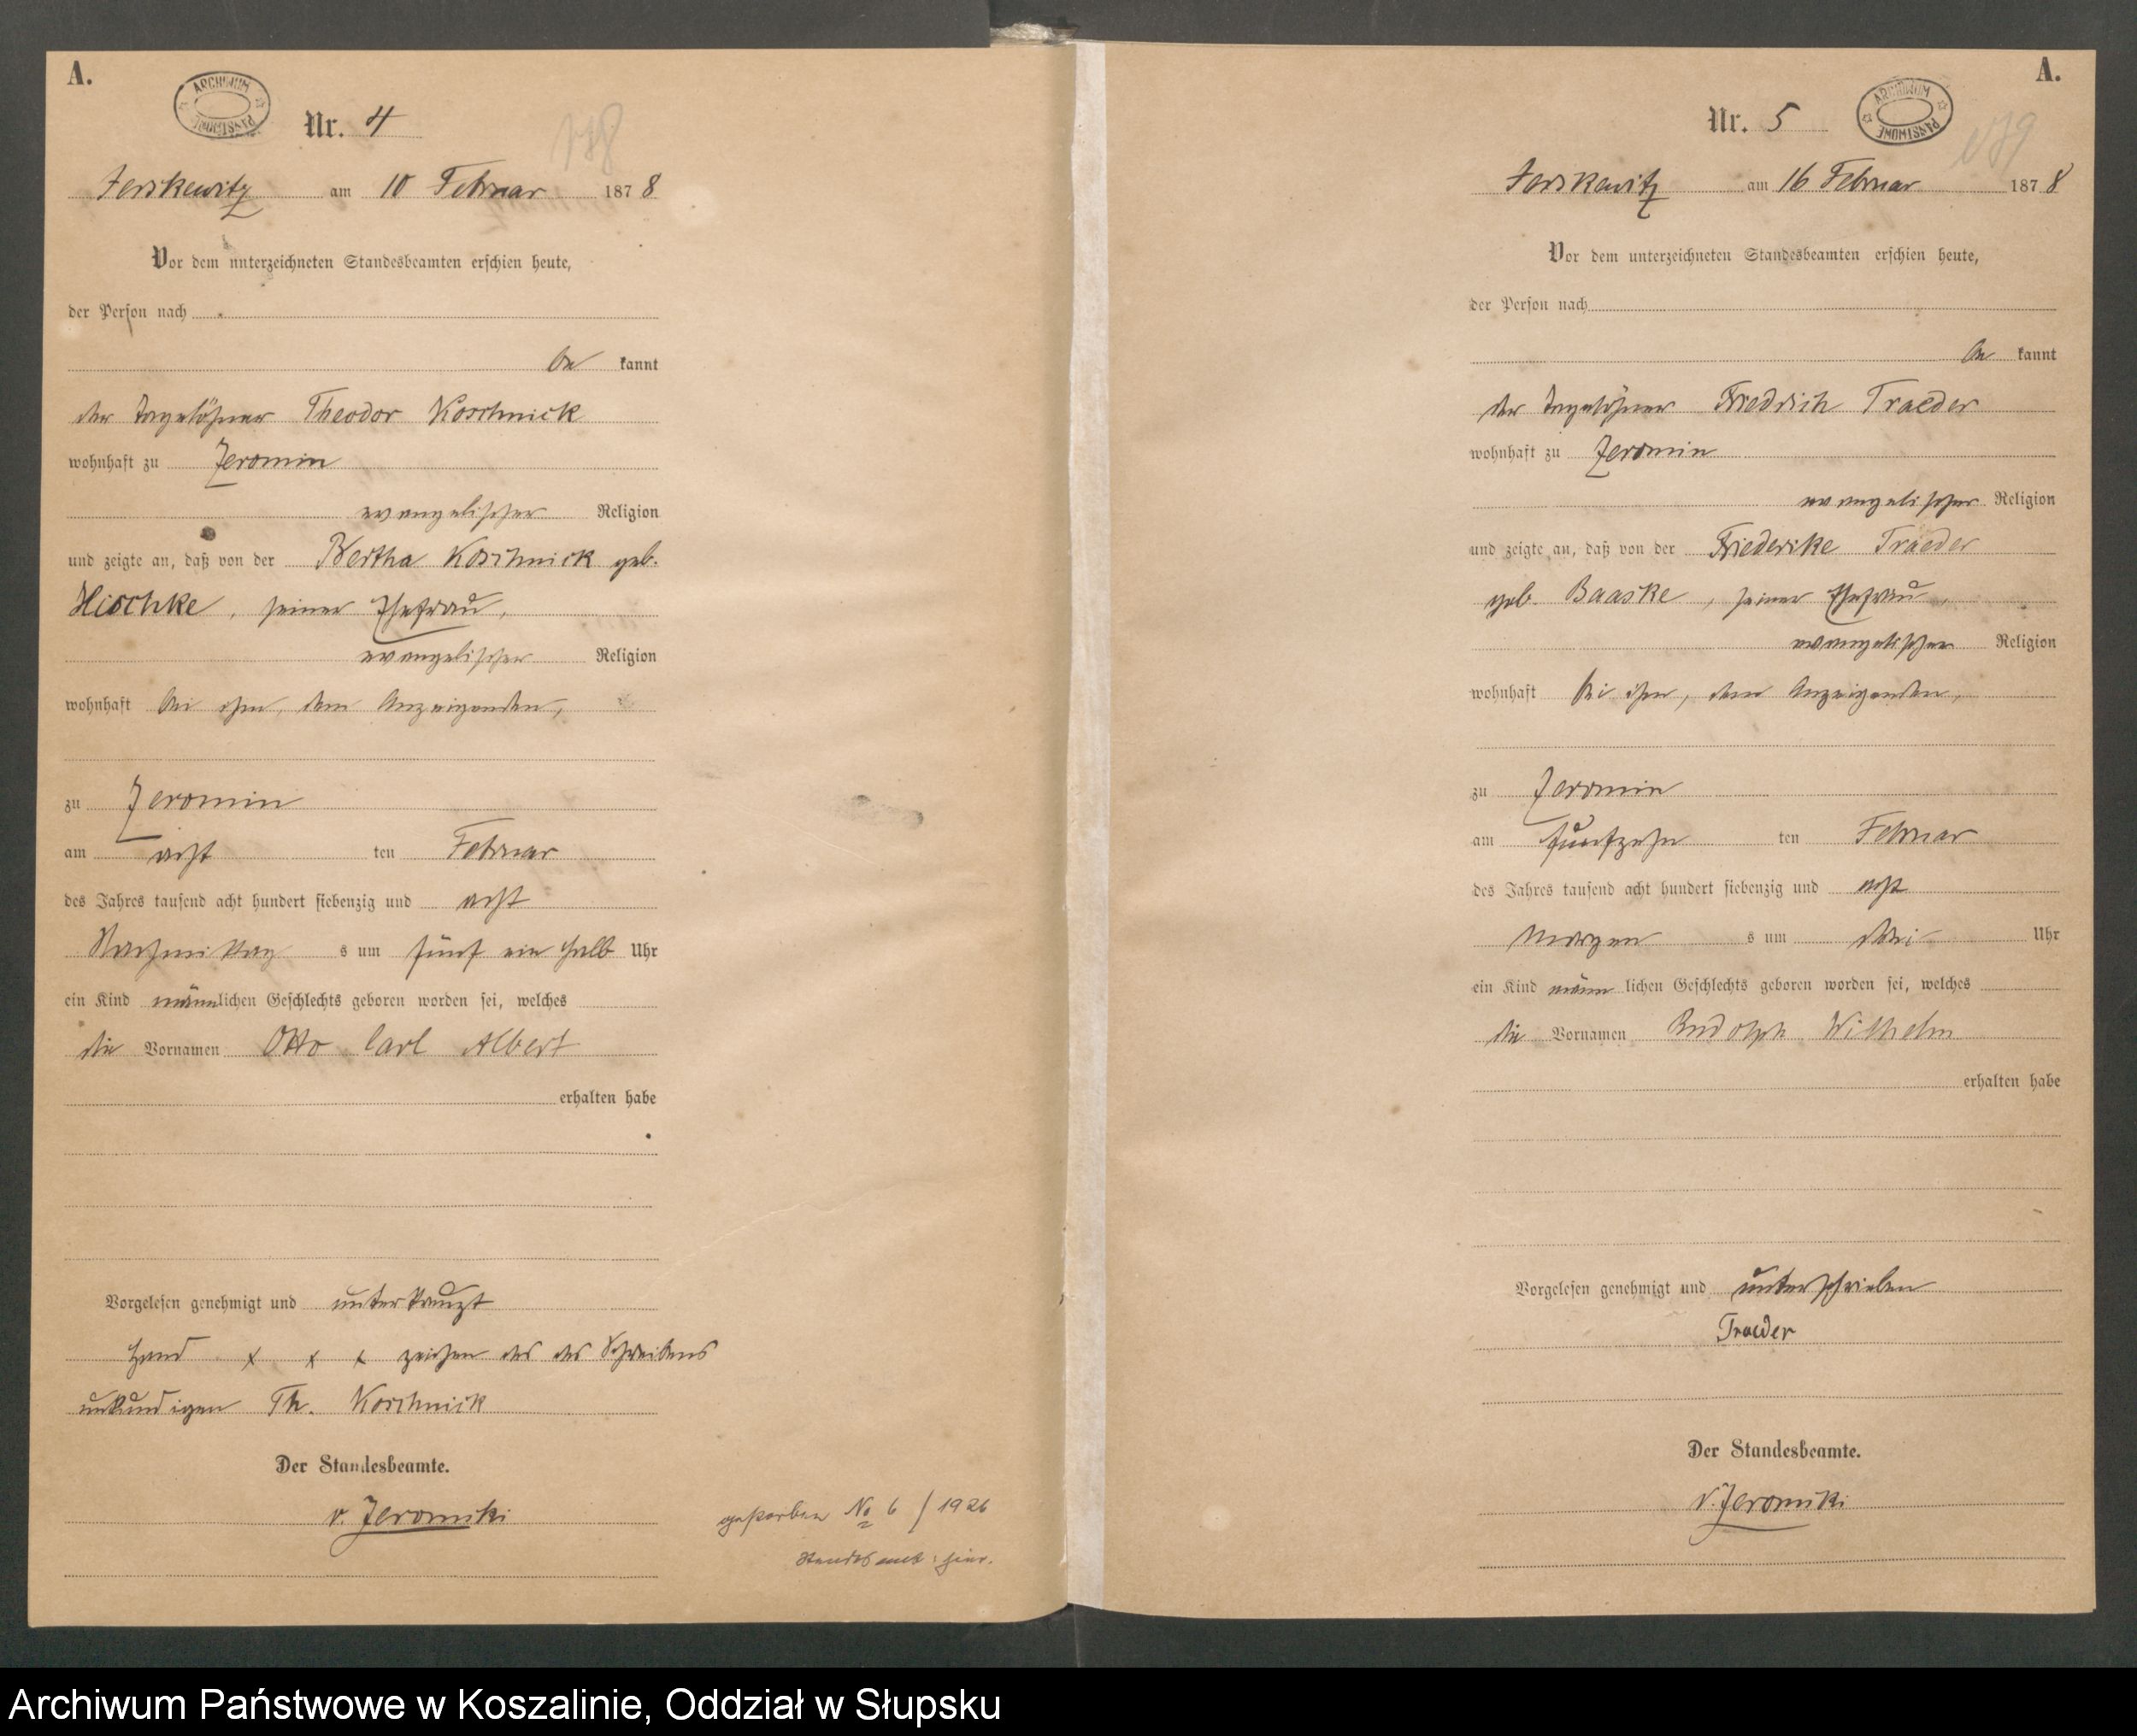 A.
ARCHIWUM PAŃSTWOWE
Nr. 4
Jerskewitz am 10 Februar 1878
Vor dem unterzeichneten Standesbeamten erschien heute,
der Person nach
be kannt
der Tagelöhner Theodor Koschnick
wohnhaft zu Jeromin
evangelischer Religion
und zeigte an, daß von der Bertha Koschnick geb.
Hischke, seiner Ehefrau,
evangelischer Religion
wohnhaft bei ihm, dem Anzeigenden,
zu Jeromin
am acht ten Februar
des Jahres tausend acht hundert siebenzig und acht
Nachmittag s um fünf ein halb Uhr
ein Kind männlichen Geschlechts geboren worden sei, welches
die Vornamen Otto Carl Albert
erhalten habe
Vorgelesen genehmigt und unterkreuzt
Hand x x x zeichen des des Schreibens
unkundigen Th. Koschnick
Der Standesbeamte.
v. Jeromski
gestorben No 6 / 1926
Standesamt: hier.
A.
ARCHIWUM PAŃSTWOWE
Nr. 5
Jerskewitz am 16 Februar 1878
Vor dem unterzeichneten Standesbeamten erschien heute,
der Person nach
be kannt
der Tagelöhner Friedrich Traeder
wohnhaft zu Jeromin
evangelischer Religion
und zeigte an, daß von der Friederike Traeder
geb. Baaske, seiner Ehefrau,
evangelischer Religion
wohnhaft bei ihm, dem Anzeigenden,
zu Jeromin
am fünfzehn ten Februar
des Jahres tausend acht hundert siebenzig und acht
Morgen s um drei Uhr
ein Kind männ lichen Geschlechts geboren worden sei, welches
die Vornamen Rudolph Wilhelm
erhalten habe
Vorgelesen genehmigt und unterschrieben
Traeder
Der Standesbeamte.
v. Jeromski
Archiwum Państwowe w Koszalinie, Oddział w Słupsku